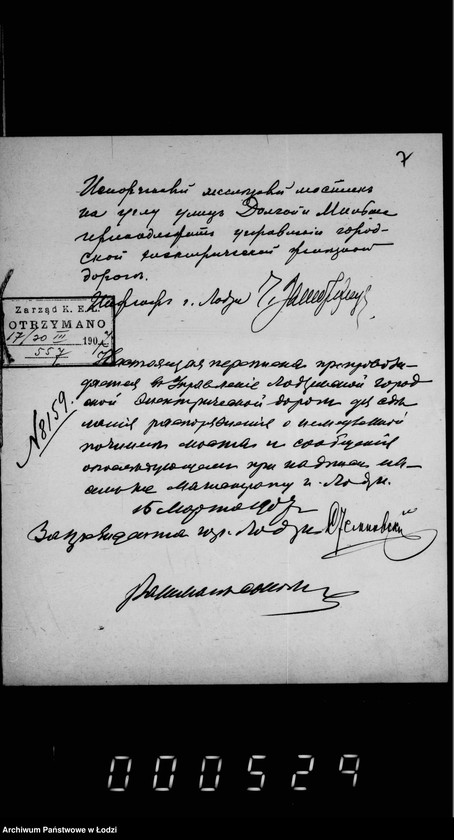 7
Испорченный железный мостик
на углу улиц Долгой и Мильша
принадлежит управлению город-
ской электрической железной
дороги.
г. Лодзи
Zarząd K. E. Ł.
OTRZYMANO
17/30 III 1907
557
Настоящая переписка препровож-
дается в Управление Лодзинской город
ской Электрической дороги для сде
лания распоряжения о немедленной
починке моста и сообщения
о последующем при надписи на-
стоящему г. Лодзи.
№ 8159.
15 Марта 1907 г.
За Президента гор. Лодзи
000529
Archiwum Państwowe w Łodzi